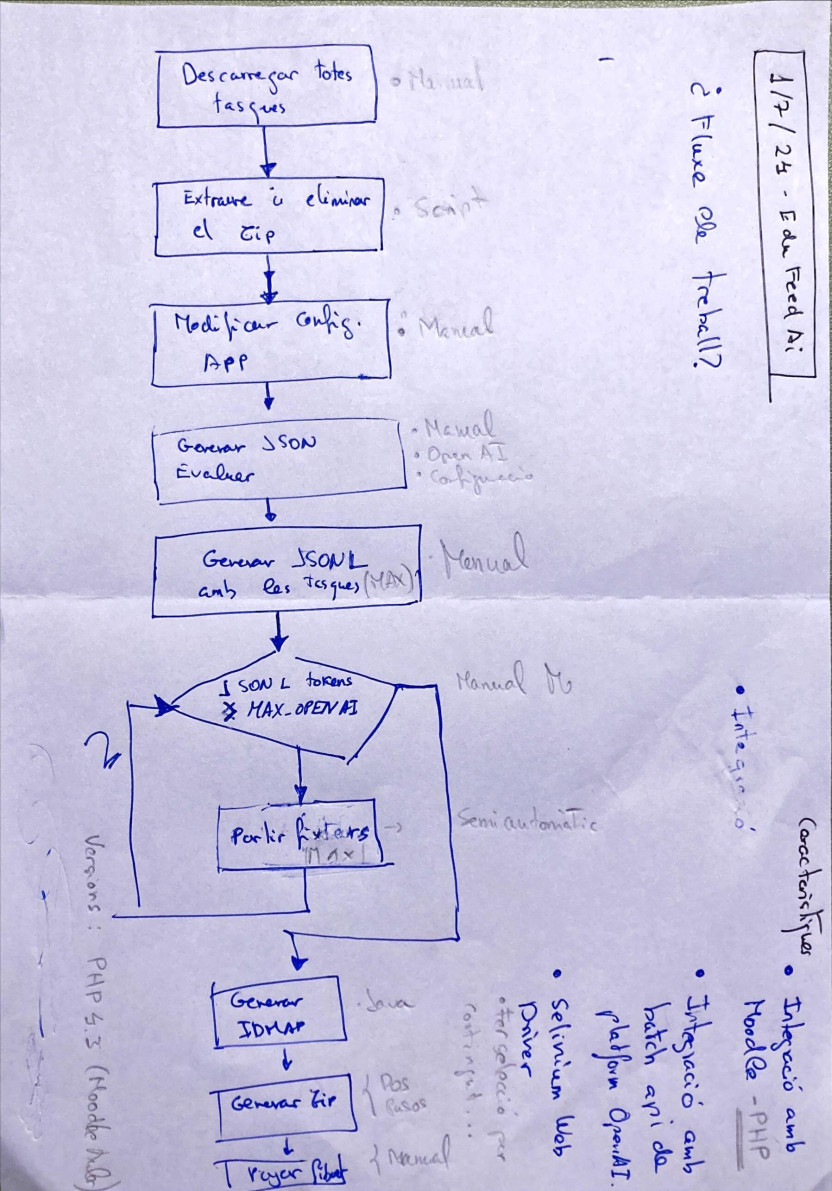 1/7/24 - EduFeedAi
¿Fluxe de treball?
Descarregar totes
tasques
• Manual
Extraure i eliminar
el zip
• Script
Modificar Config.
APP
• Manual
Generar JSON
Evaluar
• Manual
• Open AI
• Configuració
Generar JSONL
amb les tasques (MAX)
· Manual
JSONL tokens
MAX_OPENAI
Manual
Partir fitxers
"MAX"
Semiautomàtic
Generar
IDMAP
· Java
Generar Zip
{ Dos
Pasos
{ Manual
• Integració
Característiques
• Integració amb
Moodle - PHP
• Integració amb
batch api de
platform OpenAI.
• Selinium Web
Driver
• fer selecció per
contingut...
Versions: PHP 4.3 (Moodle